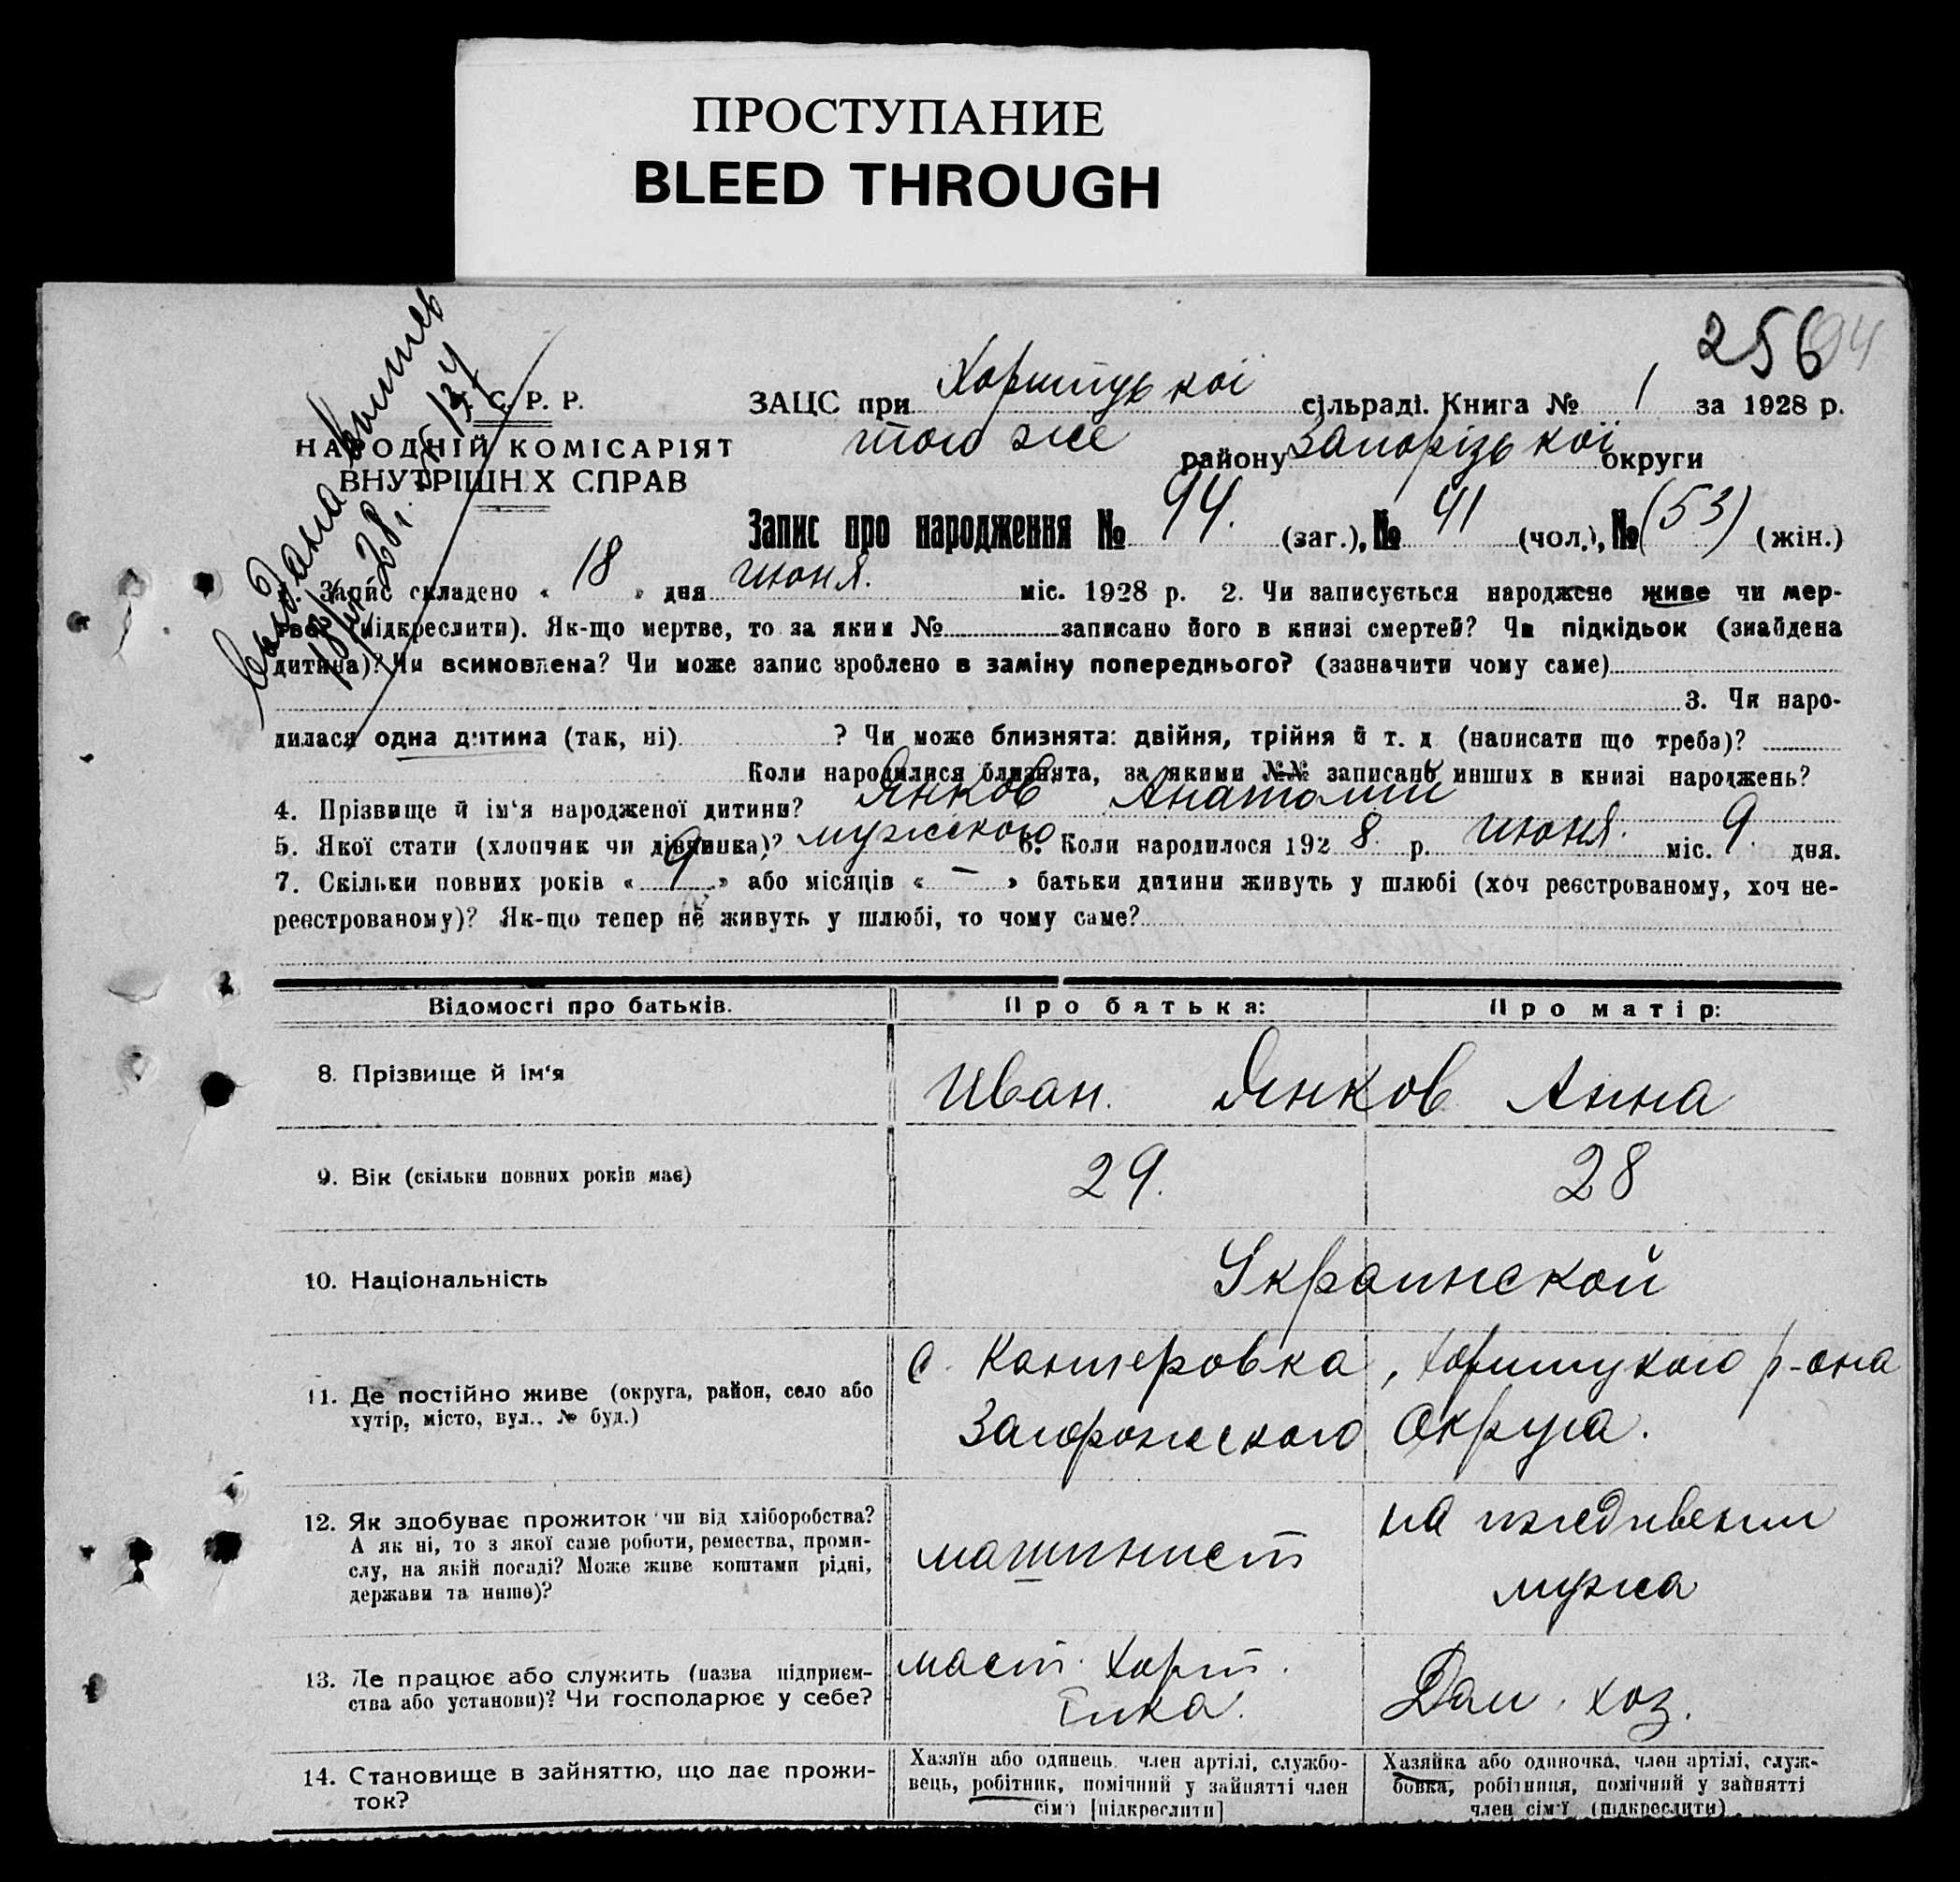 ПРОСТУПАНИЕ
BLEED THROUGH
256 94
Выдана
С. Р. Р.
НАРОДНІЙ КОМІСАРІЯТ
ВНУТРІШН Х СПРАВ
ЗАЦС при Хортицької сільраді. Книга № 1 за 1928 р.
того же району Запорізької округи
Запис про народження № 94. (заг.), № 41 (чол.), № (53) (жін.)
1. Запис складено « 18 » дня июня. міс. 1928 р. 2. Чи записується народжене живе чи мер-
тве (підкреслити). Як-що мертве, то за яким № записано його в книзі смертей? Чи підкідьок (знайдена
дитина)? Чи всиновлена? Чи може запис зроблено в заміну попереднього? (зазначити чому саме)
3. Чи наро-
дилася одна дитина (так, ні) ? Чи може близнята: двійня, трійня й т. д (написати що треба)?
Коли народилися близнята, за якими №№ записано инших в книзі народжень?
4. Прізвище й ім'я народженої дитини? Янков Анатолий
5. Якої стати (хлопчик чи дівчинка)? мужского 6. Коли народилося 1928 р. июня. міс. 9 дня.
7. Скільки повних років « 9 » або місяців « — » батьки дитини живуть у шлюбі (хоч реєстрованому, хоч не-
реєстрованому)? Як-що тепер не живуть у шлюбі, то чому саме?
Відомості про батьків. Про батька: Про матір:
8. Прізвище й ім'я Иван. Янков Анна
9. Вік (скільки повних років має) 29. 28
10. Національність Украинской
11. Де постійно живе (округа, район, село або
хутір, місто, вул.. № буд.)
с. Кантеровка, Хортицкого р-она
Запорожского Округа.
12. Як здобуває прожиток чи від хліборобства?
А як ні, то з якої саме роботи, ремества, проми-
слу, на якій посаді? Може живе коштами рідні,
держави та инше)?
машинист
на иждивении
мужа
13. Де працює або служить (назва підприєм-
ства або установи)? Чи господарює у себе?
маст. Хорт.
Дом. хоз.
14. Становище в зайняттю, що дає прожи-
ток?
Хазяїн або одинець член артілі, службо-
вець, робітник, помічний у зайнятті член
сім'ї [підкреслити]
Хазяйка або одиночка, член артілі, служ-
бовка, робітниця, помічний у зайнятті
член сім'ї (підкреслити)